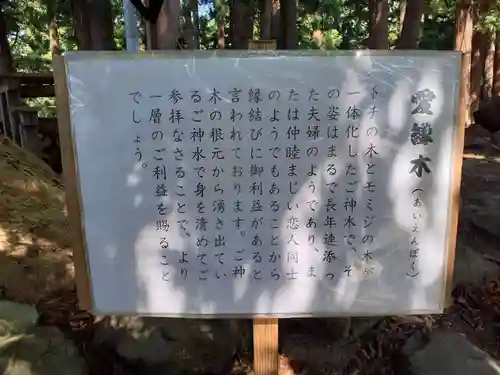 愛護木（あいえんぼく）
トチの木とモミジの木が
一体化したご神木で、そ
の姿はまるで長年連添っ
た夫婦のようであり、ま
たは仲睦まじい恋人同士
のようでもあることから
縁結びに御利益があると
言われております。ご神
木の根元から湧き出てい
るご神水で身を清めてご
参拝なさることで、より
一層のご利益を賜ること
でしょう。